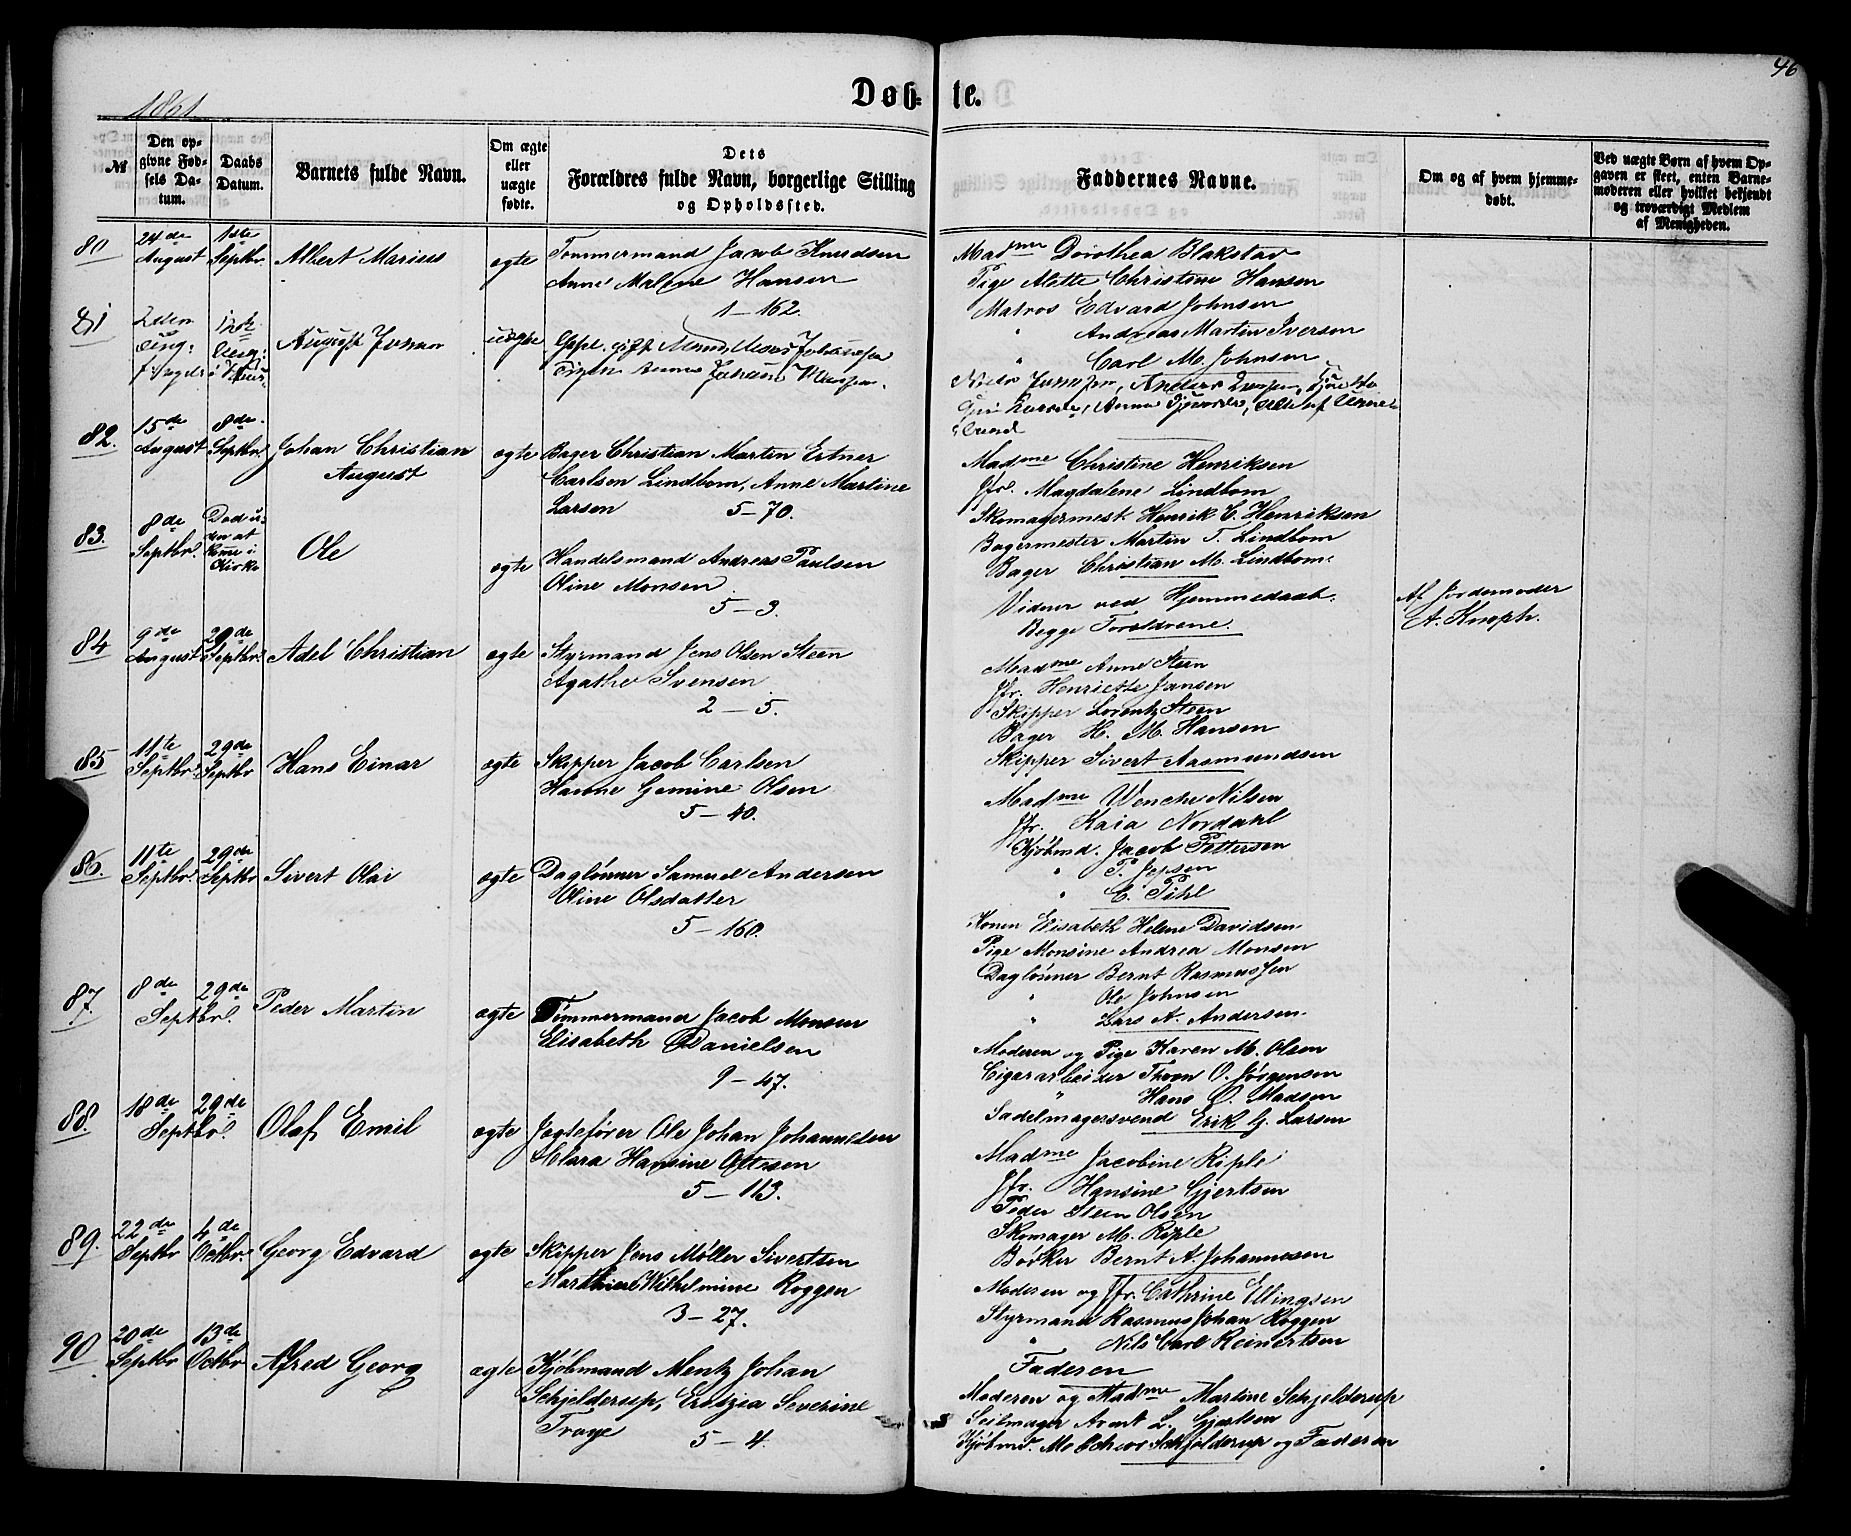 46
1861
Døbte.
№
Den opgivne Fødsels Datum.
Daabs Datum.
Barnets fulde Navn.
Om ægte eller uægte fødte.
Dets Forældres fulde Navn, borgerlige Stilling og Opholdssted.
Faddernes Navne.
Om og af hvem hjemmedøbt.
Ved uægte Børn af hvem Opgaven er skeet, enten Barnemoderen eller hvilket bekjendt og troværdigt Medlem af Menigheden.
80
24de August
1ste Septbr.
Albert Marius
ægte
Tømmermand Jacob Knudsen
Anne Malene Hansen
1 – 162.
Madme Dorothea Blakstav
Pige Mette Christine Hansen
Matros Edvard Johnsen
" Andreas Martin Iversen
" Carl M. Johnsen
81
August
uægte
82.
15de August
8de Septbr.
Johan Christian
August
ægte
Bager Christian Martin Ertner
Carlsen Lindbom, Anne Martine
Larsen
5 – 70.
Madme Christine Henriksen
Jfr. Magdalene Lindbom
Skomagermest. Henrik C. Henriksen
Bagermester Martin T. Lindbom
Bager Christian M. Lindbom.
83.
8de Septbr.
Død u-
den at
komme i
Kirke
Ole
ægte
Handelsmand Andreas Paulsen
Oline Monsen
5 – 3.
Vidner ved Hjemmedaab.
Begge Forældrene.
Af Jordemoder
A. Knoph.
84
9de August
29de Septbr.
Adel Christian
ægte
Styrmand Jens Olsen Steen
Agathe Svensen
2 – 5.
Madme Anne Steen
Jfr. Henriette Jansen
Skipper Lorentz Steen
Bager H. M. Hansen
Skipper Sivert Aasmundsen
85
11te Septbr.
29de Septbr
Hans Einar
ægte
Skipper Jacob Carlsen
Hanne Gemine Olsen
5 – 40.
Madme Wenche Nilsen
Jfr. Kaia Nordahl
Kjøbmd. Jacob Pettersen
" P. Jepsen
" C. Pihl
86.
11te Septbr.
29de Septbr
Sivert Olai
ægte
Daglønner Samuel Andersen
Oline Olsdatter
5 – 160.
Konen Elisabeth Helene Davidsen
Pige Monsine Andrea Monsen
Daglønner Bernt Rasmussen
" Ole Johnsen
" Lars A. Andersen.
87.
8de 29de
Septbr.
Peder Martin
ægte
Tømmermand Jacob Monsen
Elisabeth Danielsen
9 – 47.
Moderen og Pige Karen M. Olsen
Cigararbeider Thron O. Jørgensen
" Hans O. Madsen
Sadelmagersvend Erik G. Larsen
88.
18de 29de
Septbr.
Olaf Emil
ægte
Jægtefører Ole Johan Johannesen
Klara Hansine Ottesen
5 – 113.
Madme Jacobine Riple
Jfr. Hansine Gjertsen
Peder Steen Olsen
Skomager M. Riple
Bødker Bernt A. Johannesen
89.
22de Septbr
4de Octbr.
Georg Edvard
ægte
Skipper Jens Møller Sivertsen
Marthine Wilhelmine Roggen
3 – 27.
Moderen og Jfr. Cathrine Ellingsen
Styrmand Rasmus Johan Roggen
" Nils Carl Reinertsen
Faderen
90
20de Septbr
13de Octbr
Alfred Georg
ægte
Kjøbmand Mentz Johan
Schjelderup, Severine
Troye
5 – 4.
Moderen og Madme Martine Schjelderup
Seilmager L. Gjertsen
Kjøbmd. Melchior Schjelderup og Faderen